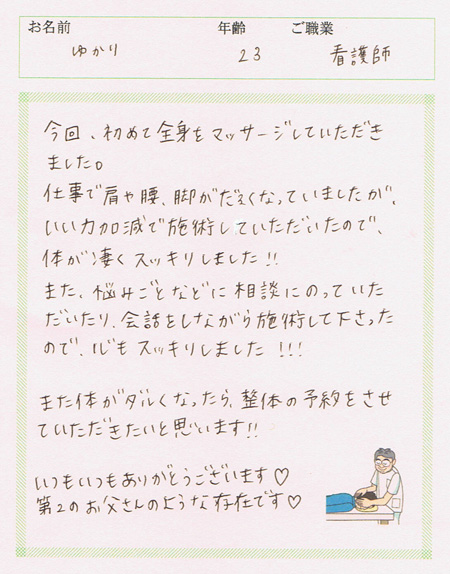 お名前 年齢 ご職業
ゆかり 23 看護師
今回、初めて全身をマッサージしていただき
ました。
仕事で肩や腰、脚がだるくなっていましたが、
いい力加減で施術していただいたので、
体が凄くスッキリしました!!
また、悩みごとなどに相談にのっていた
だいたり、会話をしながら施術して下さった
ので、心もスッキリしました!!!
また体がダルくなったら、整体の予約をさせ
ていただきたいと思います!!
いつもいつもありがとうございます♡
第2のお父さんのような存在です♡